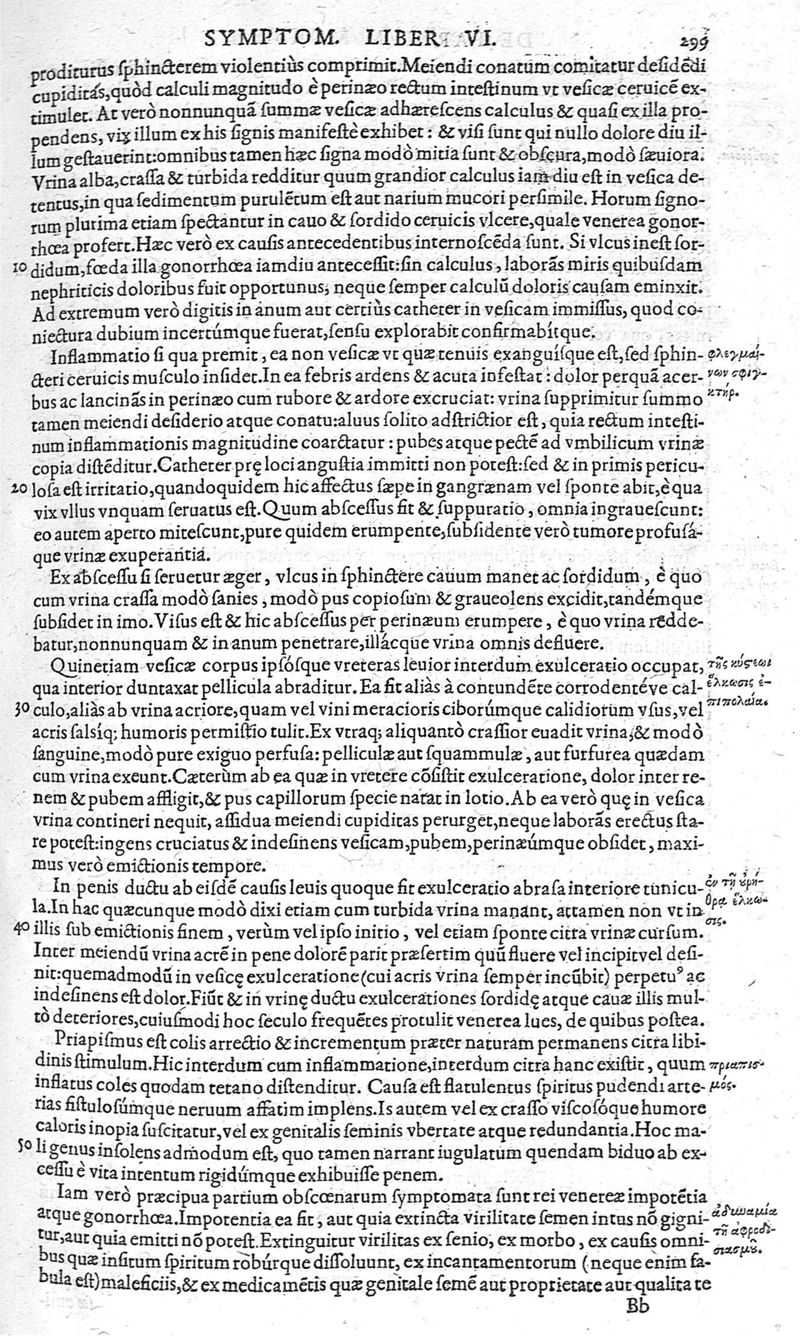 SYMPTOM. LIBER. VI. 299
proditurus ſphincterem violentiùs comprimit. Meiendi conatum comitatur deſidẽdi
cupiditas, quòd calculi magnitudo è perinæo rectum inteſtinum vt veſicæ ceruicẽ ex-
timulet. At verò nonnunquã ſummæ veſicæ adhæreſcens calculus & quaſi ex illa pro-
pendens, vix illum ex his ſignis manifeſtè exhibet: & viſi ſunt qui nullo dolore diu il-
lum geſtauerint: omnibus tamen hæc ſigna modò mitia ſunt & obſcura, modò ſæuiora.
Vrina alba, craſſa & turbida redditur quum grandior calculus iam diu eſt in veſica de-
tentus, in qua ſedimentum purulẽtum eſt aut narium mucori perſimile. Horum ſigno-
rum plurima etiam ſpectantur in cauo & ſordido ceruicis vlcere, quale venerea gonor-
rhœa profert. Hæc verò ex cauſis antecedentibus internoſcẽda ſunt. Si vlcus ineſt ſor-
10 didum, fœda illa gonorrhœa iamdiu anteceſſit: ſin calculus, laborãs miris quibuſdam
nephriticis doloribus fuit opportunus; neque ſemper calculũ doloris cauſam eminxit.
Ad extremum verò digitis in anum aut certiùs catheter in veſicam immiſſus, quod co-
niectura dubium incertúmque fuerat, ſenſu explorabit confirmabítque.
Inflammatio ſi qua premit, ea non veſicæ vt quæ tenuis exanguíſque eſt, ſed ſphin- φλεγμαί-
cteri ceruicis muſculo inſidet. In ea febris ardens & acuta infeſtat: dolor perquã acer- νων σφιγ-
bus ac lancinãs in perinæo cum rubore & ardore excruciat: vrina ſupprimitur ſummo κτήρ.
tamen meiendi deſiderio atque conatu: aluus ſolito adſtrictior eſt, quia rectum inteſti-
num inflammationis magnitudine coarctatur: pubes atque pectẽ ad vmbilicum vrinæ
copia diſtẽditur. Catheter prę loci anguſtia immitti non poteſt: ſed & in primis pericu-
20 loſa eſt irritatio, quandoquidem hic affectus ſæpe in gangrænam vel ſponte abit, è qua
vix vllus vnquam ſeruatus eſt. Quum abſceſſus fit & ſuppuratio, omnia ingraueſcunt:
eo autem aperto miteſcunt, pure quidem erumpente, ſubſidente verò tumore profuſá-
que vrinæ exuperantia.
Ex abſceſſu ſi ſeruetur æger, vlcus in ſphinctere cauum manet ac ſordidum, è quo
cum vrina craſſa modò ſanies, modò pus copioſum & graueolens excidit, tandémque
ſubſidet in imo. Viſus eſt & hic abſceſſus per perinæum erumpere, è quo vrina redde-
batur, nonnunquam & in anum penetrare, illácque vrina omnis defluere.
Quinetiam veſicæ corpus ipſóſque vreteras leuior interdum exulceratio occupat, τῆς κύστεως
qua interior duntaxat pellicula abraditur. Ea fit aliàs à contundẽte corrodentéve cal- ἕλκωσις ἐ-
30 culo, aliàs ab vrina acriore, quam vel vini meracioris ciborúmque calidiorum vſus, vel πιπολαία.
acris ſalsíq; humoris permiſtio tulit. Ex vtraq; aliquantò craſſior euadit vrina, & modò
ſanguine, modò pure exiguo perfuſa: pelliculæ aut ſquammulæ, aut furfurea quædam
cum vrina exeunt. Cæterùm ab ea quæ in vretere cõſiſtit exulceratione, dolor inter re-
nem & pubem affligit, & pus capillorum ſpecie natat in lotio. Ab ea verò quę in veſica
vrina contineri nequit, aſſidua meiendi cupiditas perurget, neque laborãs erectus ſta-
re poteſt: ingens cruciatus & indeſinens veſicam, pubem, perinæúmque obſidet, maxi-
mus verò emictionis tempore.
In penis ductu ab eiſdẽ cauſis leuis quoque fit exulceratio abraſa interiore tunicu- ἐν τῇ οὐρή-
la. In hac quæcunque modò dixi etiam cum turbida vrina manant, attamen non vt in θρᾳ ἕλκω-
40 illis ſub emictionis finem, verùm vel ipſo initio, vel etiam ſponte citra vrinæ curſum. σις.
Inter meiendũ vrina acrẽ in pene dolorẽ parit præſertim quũ fluere vel incipit vel deſi-
nit: quemadmodũ in veſicę exulceratione (cui acris vrina ſemper incũbit) perpetuꝰ ac
indeſinens eſt dolor. Fiũt & in vrinę ductu exulcerationes ſordidę atque cauæ illis mul-
tò deteriores, cuiuſmodi hoc ſeculo frequẽtes protulit venerea lues, de quibus poſtea.
Priapiſmus eſt colis arrectio & incrementum præter naturam permanens citra libi-
dinis ſtimulum. Hic interdum cum inflammatione, interdum citra hanc exiſtit, quum πριαπισ-
inflatus coles quodam tetano diſtenditur. Cauſa eſt flatulentus ſpiritus pudendi arte- μός.
rias fiſtuloſúmque neruum affatim implens. Is autem vel ex craſſo viſcosóque humore
caloris inopia ſuſcitatur, vel ex genitalis ſeminis vbertate atque redundantia. Hoc ma-
50 li genus inſolens admodum eſt, quo tamen narrant iugulatum quendam biduo ab ex-
ceſſu è vita intentum rigidúmque exhibuiſſe penem.
Iam verò præcipua partium obſcœnarum ſymptomata ſunt rei venereæ impotẽtia
atque gonorrhœa. Impotentia ea fit, aut quia extincta virilitate ſemen intus nõ gigni- ἀδυναμία
tur, aut quia emitti nõ poteſt. Extinguitur virilitas ex ſenio, ex morbo, ex cauſis omni- τῇ ἀφροδι-
bus quæ inſitum ſpiritum robúrque diſſoluunt, ex incantamentorum (neque enim fa- σιασμοῦ.
bula eſt) maleficiis, & ex medicamẽtis quæ genitale ſemẽ aut proprietate aut qualitate
Bb